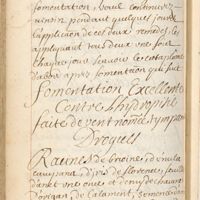 fomentation, vous continuerez
ainsin pendant quelques jours
l'application de ces deux remedes les
appliquant tous deux une fois
chaque jour scavoir le cataplasme
d'abord apres fomentation qui suit
Fomentation Excellente
Contre L'hydropisie
faite de vent nomée tympan
Drogues
Racines de broine, d'enula
campana, d'iris de florence,
d'anet une once et demy de chacune
D'origan, de Calament, semence d'anis